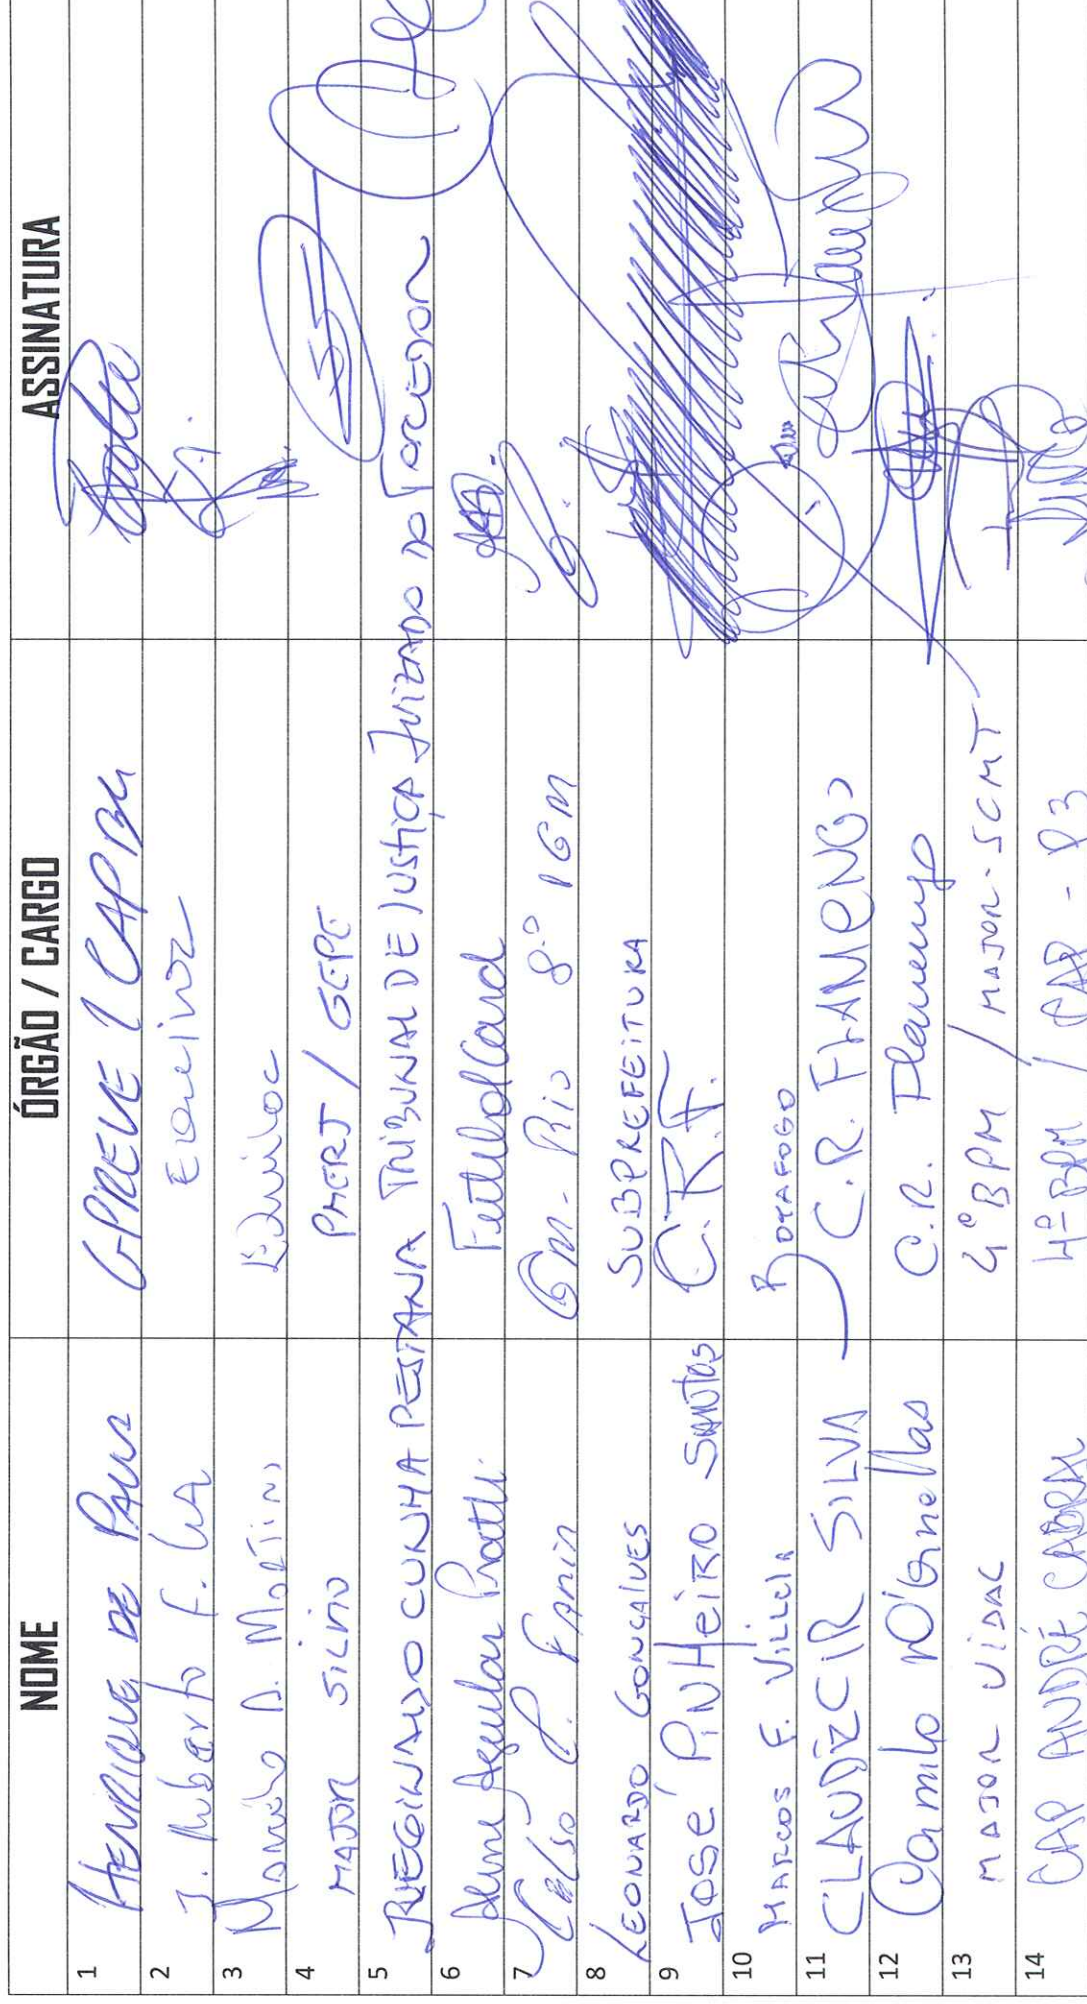 NOME ÓRGÃO / CARGO ASSINATURA
1 HENRIQUE DE PAULA GPREVE / CAP BM
2 J. Roberto F.
3 D. Martins
4 MAJOR SILVIO PMERJ / GEPE
5 REGINALDO CUNHA PESTANA TRIBUNAL DE JUSTIÇA JUIZADO DO TORCEDOR
6 Aline Aguilar Pratti FutebolCard
7 Celso P. GM-Rio 8º IGM
8 LEONARDO GONÇALVES SUBPREFEITURA
9 JOSÉ PINHEIRO SANTOS C.R.F.
10 MARCOS F. VILLELA BOTAFOGO
11 CLAUDECIR SILVA C.R. FLAMENGO
12 Camilo D'Ornellas C.R. Flamengo
13 MAJOR VIDAL 4º BPM / MAJOR - SCMT
14 CAP ANDRÉ CABRAL 4º BPM / CAP - P3